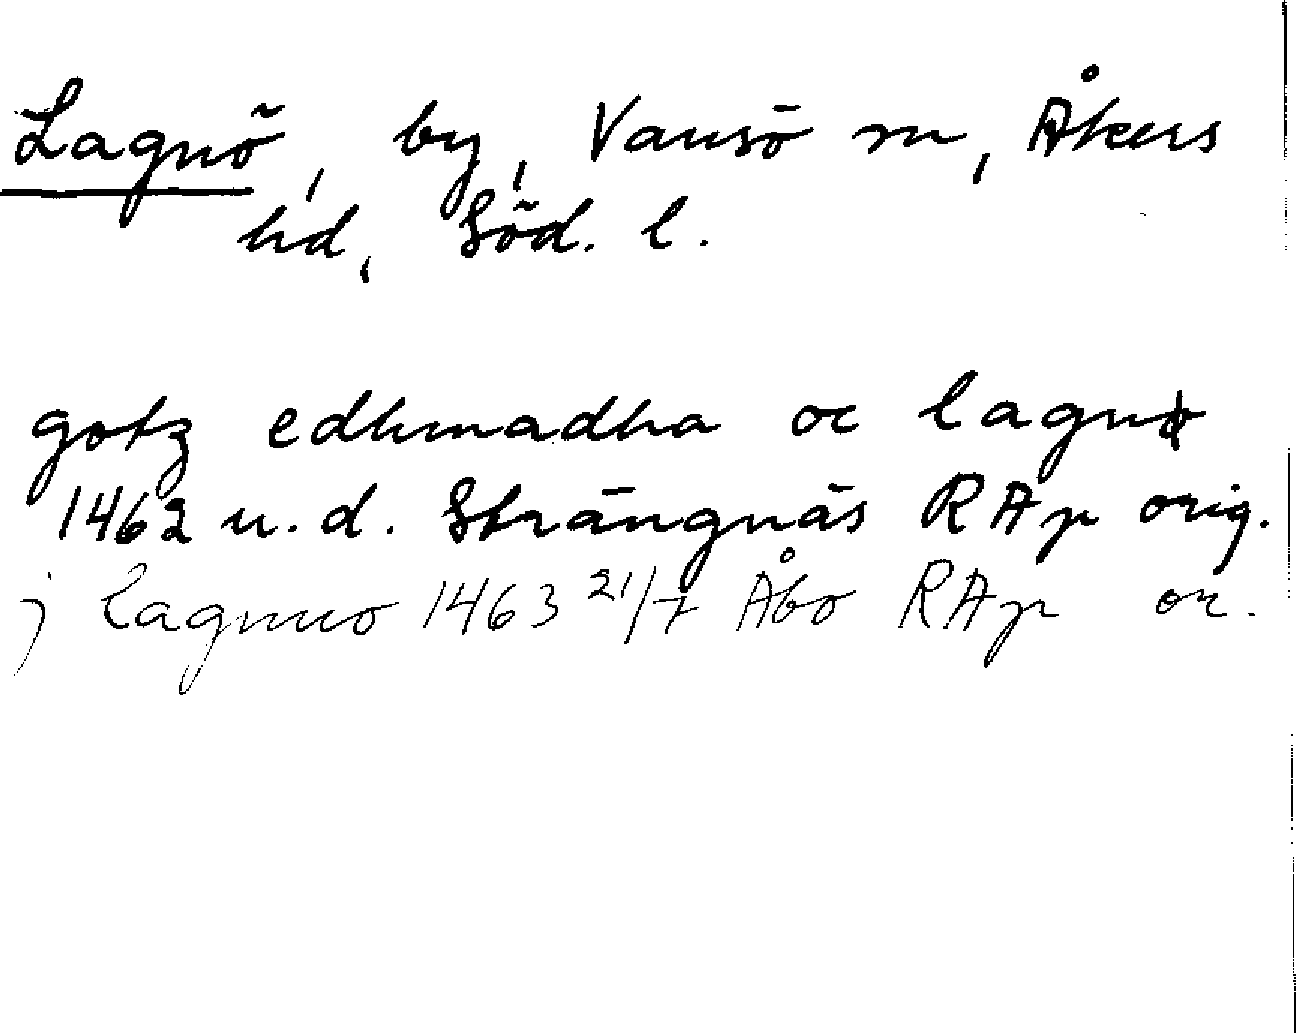 Lagnö, by, Vansö sn, Åkers
hd, Söd. l.
gotz edhmadha oc lagnø
1462 u.d. Strängnäs RAp orig.
j Lagnuo 1463 21/7 Åbo RAp or.